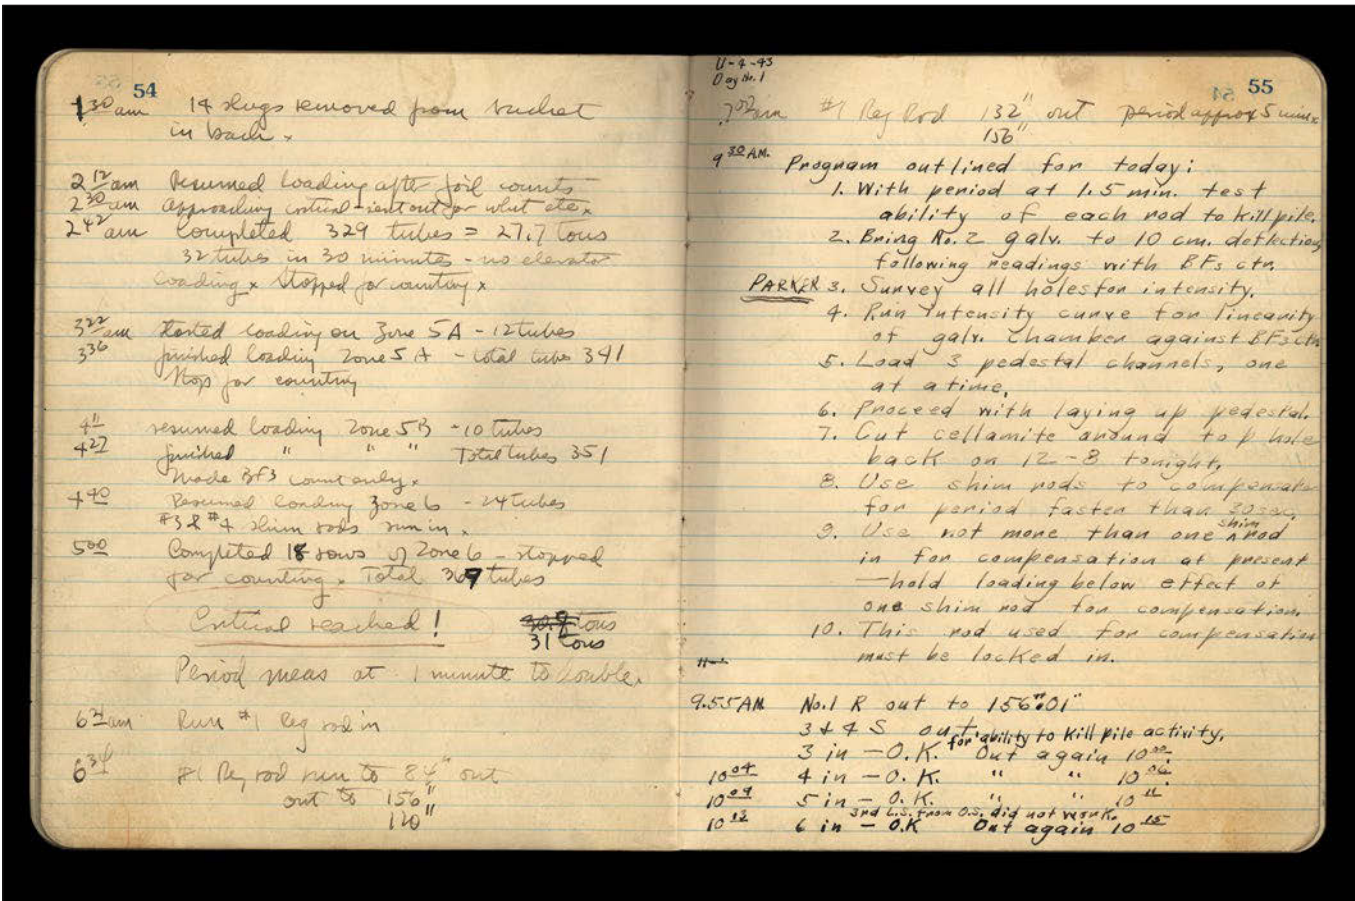 54
1 30 am 14 slugs removed from bucket
in back.
2 12 am Resumed loading after foil counts
2 30 am approaching critical
2 42 am Completed 329 tubes = 27.7 tons
32 tubes in 30 minutes - no elevator
loading x Stopped for counting x
3 22 am Started loading on Zone 5A - 12 tubes
3 36 finished loading Zone 5A - total tubes 341
Stop for counting
4 11 resumed loading Zone 5B - 10 tubes
4 27 finished " " " Total tubes 351
Made BF3 count only x
4 40 Resumed loading Zone 6 - 24 tubes
#3 & #4 shim rods run in.
5 00 Completed 18 rows of Zone 6 - stopped
for counting. Total 369 tubes
Critical reached! tons
31 tons
Period meas at 1 minute to double.
am Run #1 Reg rod in
6 34 #1 Reg rod run to 84" out
out to 156"
120"
11-4-43
Day No. 1
55
am #1 Reg Rod 132" out period approx 5 min x
156"
9 30 A.M. Program outlined for today:
1. With period at 1.5 min. test
ability of each rod to kill pile.
2. Bring No. 2 galv. to 10 cm. deflection,
following readings with BF3 ctr.
PARKER 3. Survey all holes for intensity.
4. Run intensity curve for linearity
of galv. chamber against BF3 ctr.
5. Load 3 pedestal channels, one
at a time.
6. Proceed with laying up pedestal.
7. Cut cellamite around top hole
back on 12-8 tonight.
8. Use shim rods to compensate
for period faster than 30 sec.
9. Use not more than one shim rod
in for compensation at present
—hold loading below effect of
one shim rod for compensation.
10. This rod used for compensation
must be locked in.
9.55 AM No.1 R out to 156".01"
3 + 4 S out for ability to kill pile activity.
3 in - O.K. Out again 10 00.
10 04 4 in - O.K. " " 10 06.
10 09 5 in - O.K. " " 10 11
3rd L.S. from O.S. did not work.
10 13 6 in - O.K Out again 10 15